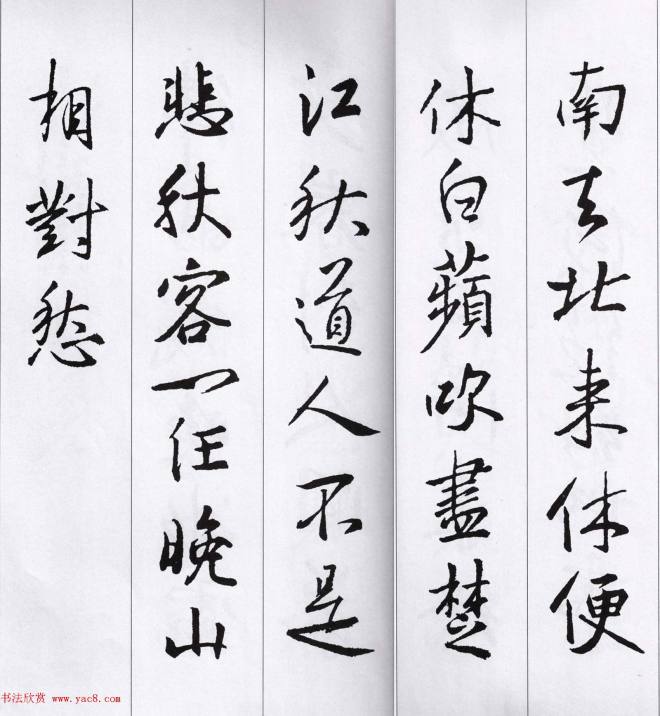 南去北来休便
休白蘋吹盡楚
江秋道人不是
悲秋客一任晚山
相對愁
书法欣赏 www.yac8.com